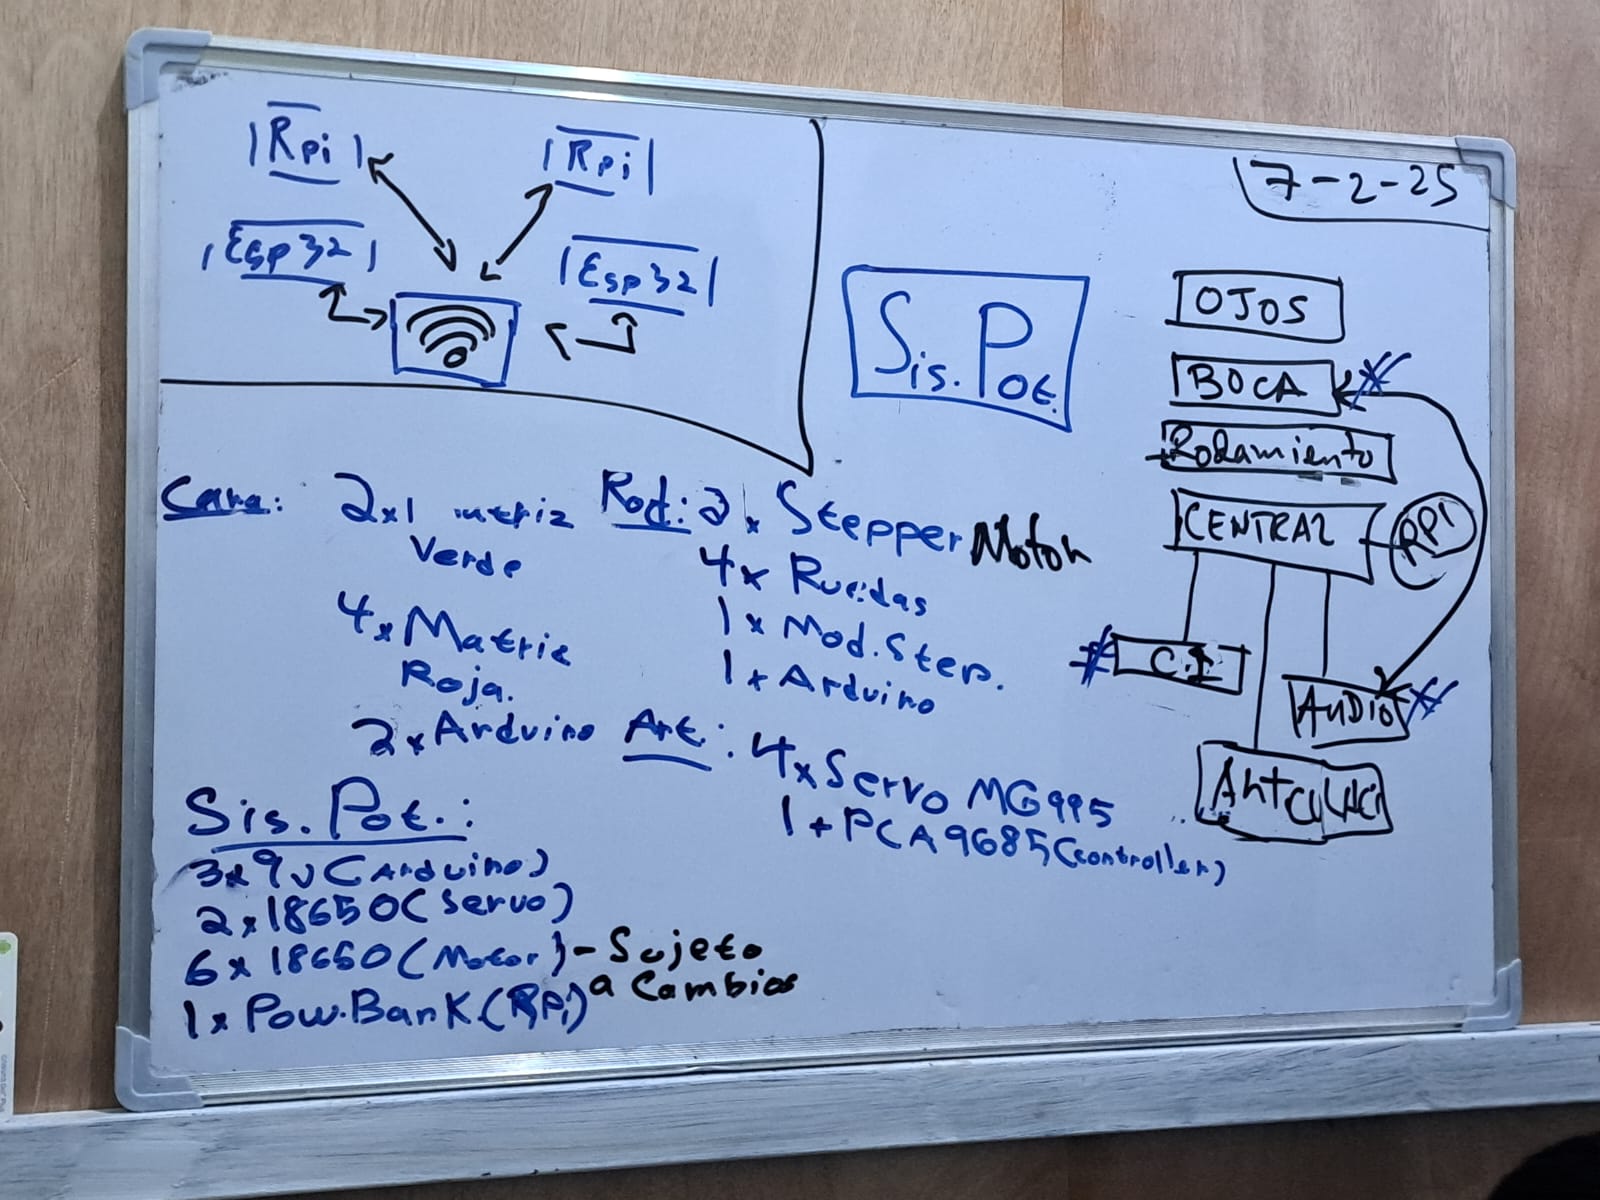 Rpi
Rpi
Esp32
Esp32
7-2-25
Sis. Pot.
OJOS
BOCA
Rodamiento
CENTRAL
RPI
C.I
AUDIO
Cara:
2x1 matriz
Verde
4x Matriz
Roja.
2x Arduino
Rod: 2x Stepper Motor
4x Ruedas
1x Mod. Step.
1x Arduino
Art.: 4x Servo MG995
1x PCA9685 (controller)
Sis. Pot.:
3x 9v (Arduino)
2x 18650 (Servo)
6x 18650 (Motor) - Sujeto
a Cambios
1x Pow.Bank (RPi)